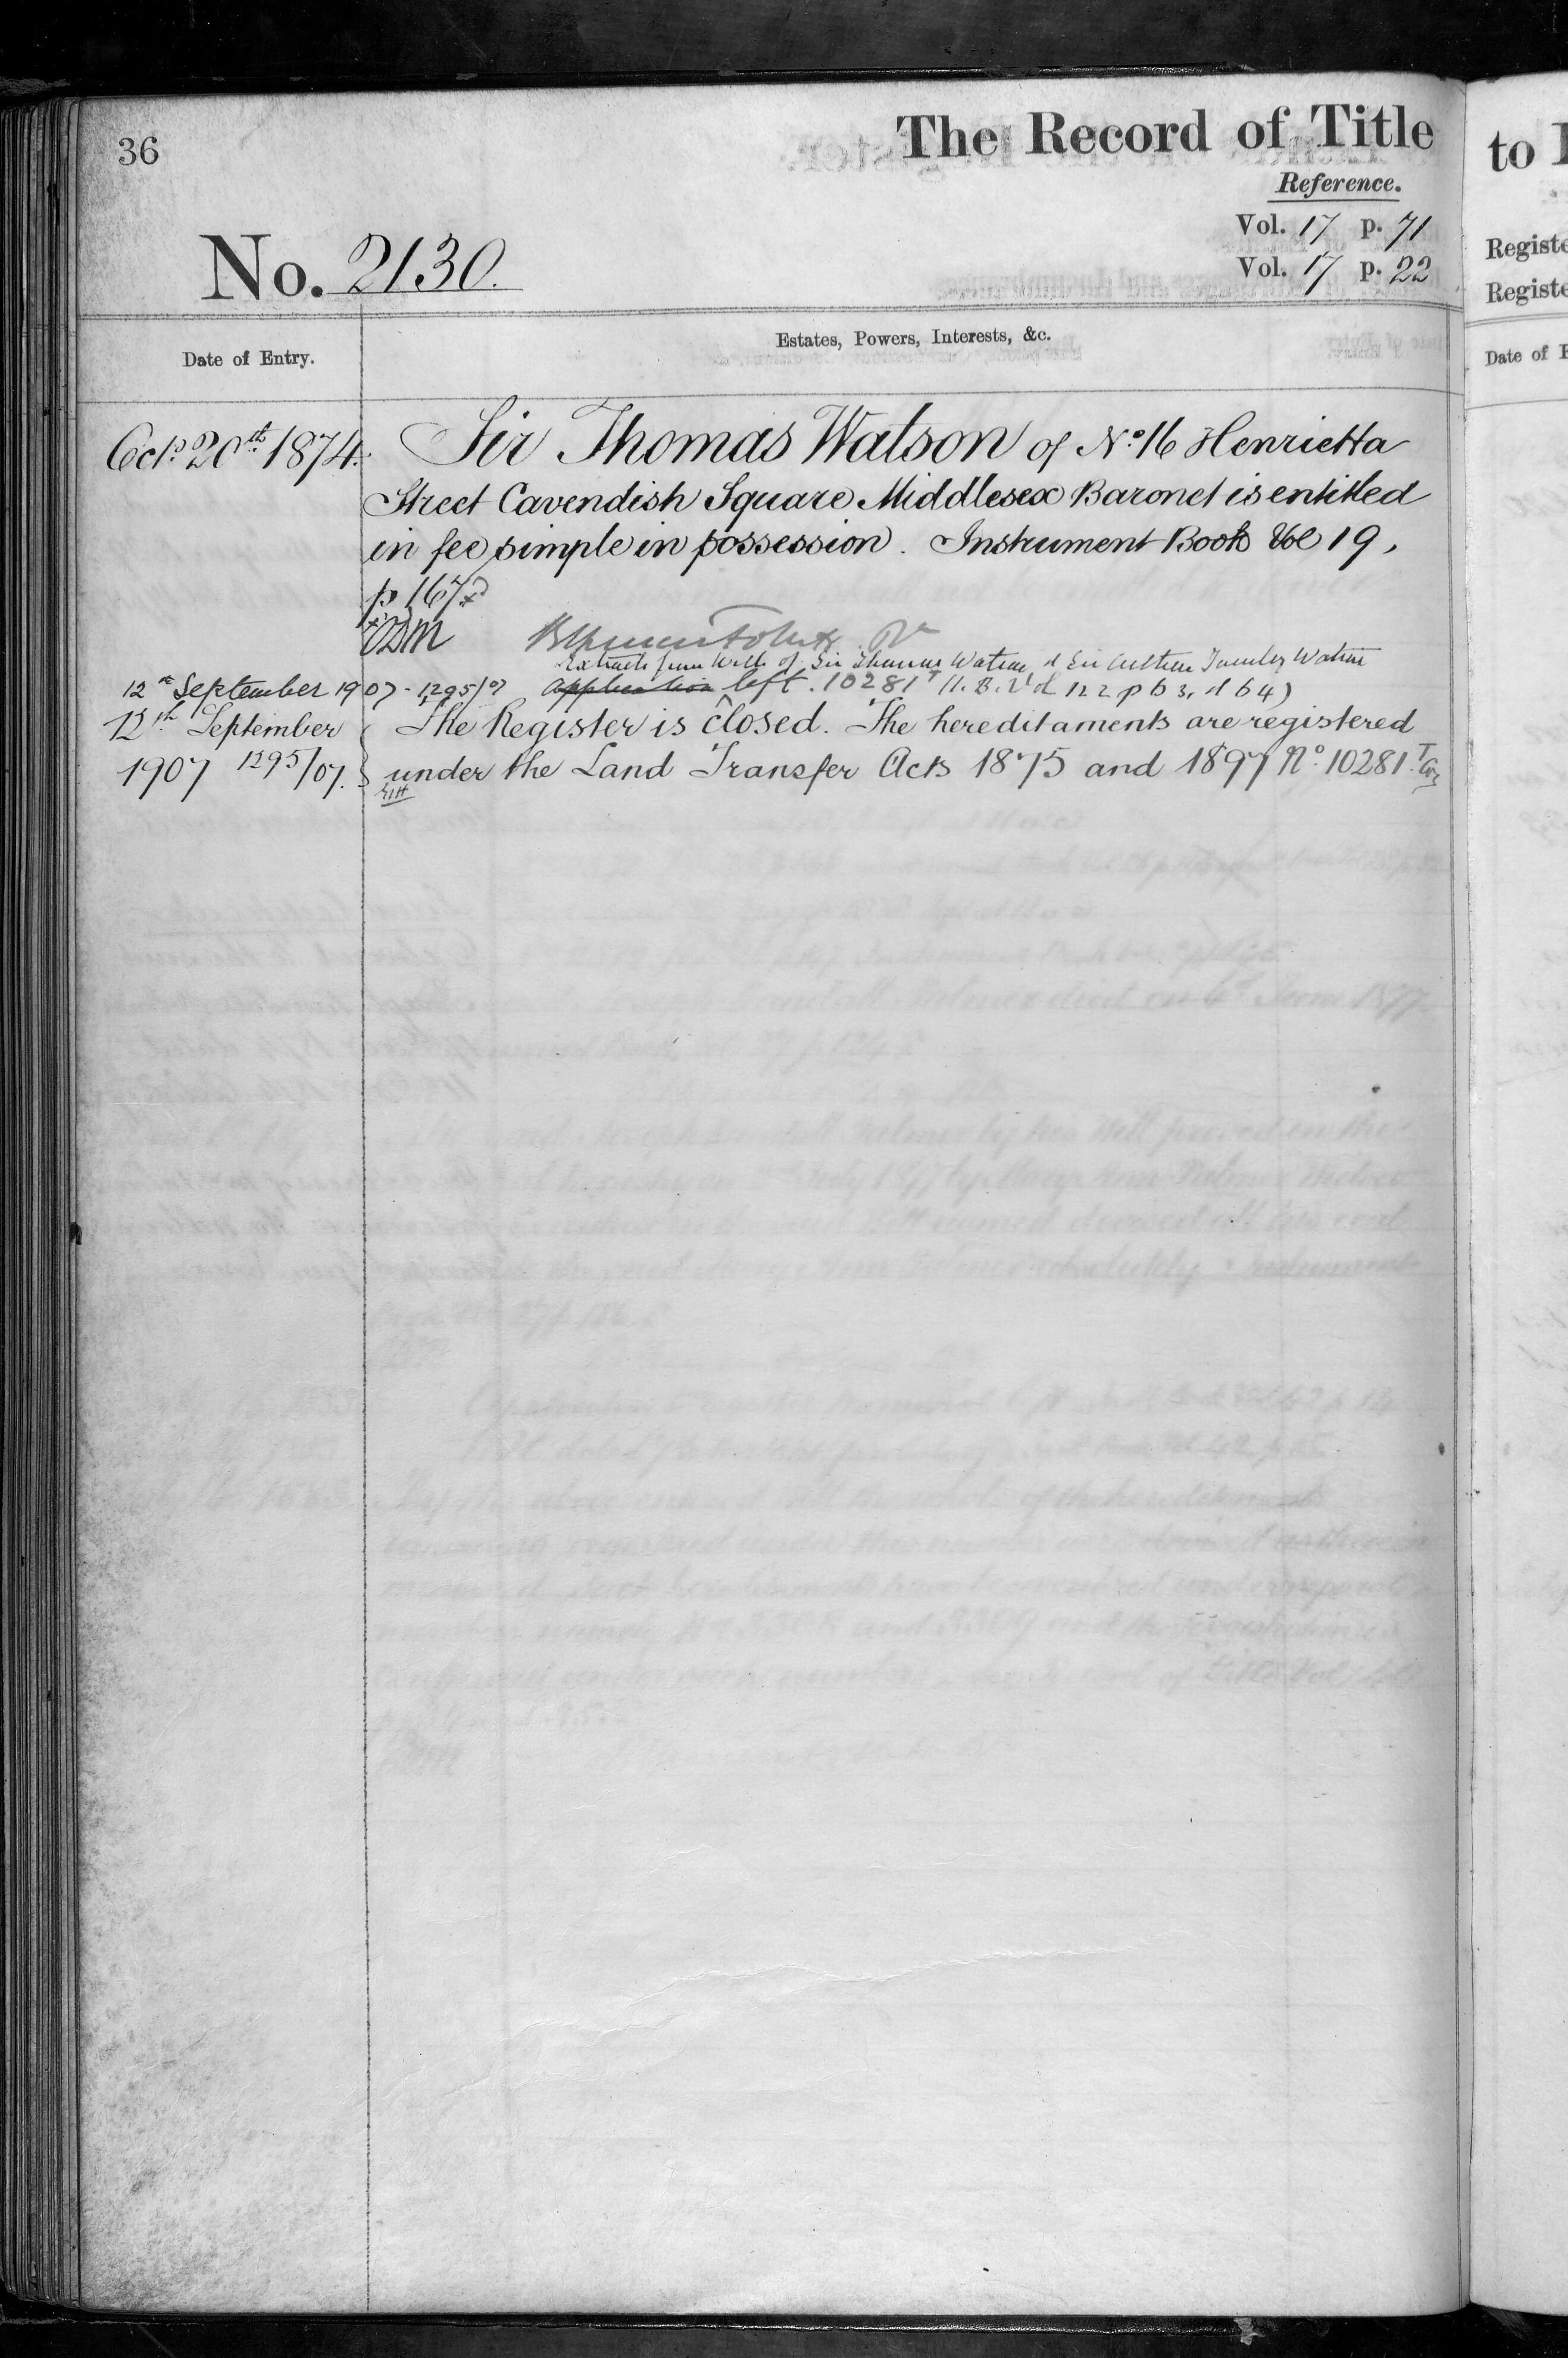 36
The Record of Title
Reference.
Vol. 17 p. 71
Vol. 17 p. 22
No. 2130.
Date of Entry.
Estates, Powers, Interests, &c.
Octr. 20th. 1874. Sir Thomas Watson of No. 16 Henrietta
Street Cavendish Square Middlesex Baronet is entitled
in fee simple in possession. Instrument Book Vol 19,
p 167
Extracts from Wills of Sir Thomas Watson & Sir Arthur Townley Watson
12th September 1907 - 1295/07 Application left. 10281T (I. B. Vol 122 p 63, & 64)
12th September The Register is closed. The hereditaments are registered
1907 1295/07. under the Land Transfer Acts 1875 and 1897 No. 10281.T
to
Registe
Registe
Date of